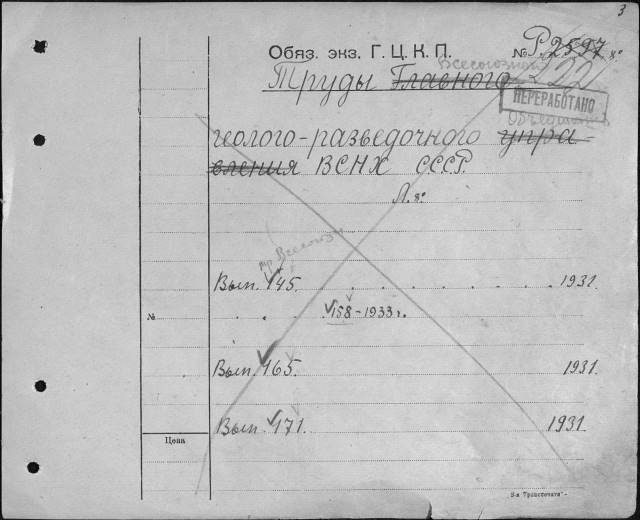 3
Обяз. экз. Г. Ц. К. П. № Р.2597 8°
Всесоюзной
Труды Главного
ПЕРЕРАБОТАНО
Объединен
геолого-разведочного упра
вления ВСНХ СССР.
Л. 8°
пр Всесоюзн
Вып. 145. . . . . . . . 1931.
№ . . 158-1933 г.
Вып. 165. 1931.
Вып. 171. 1931.
Цена
3-я "Транспечать"